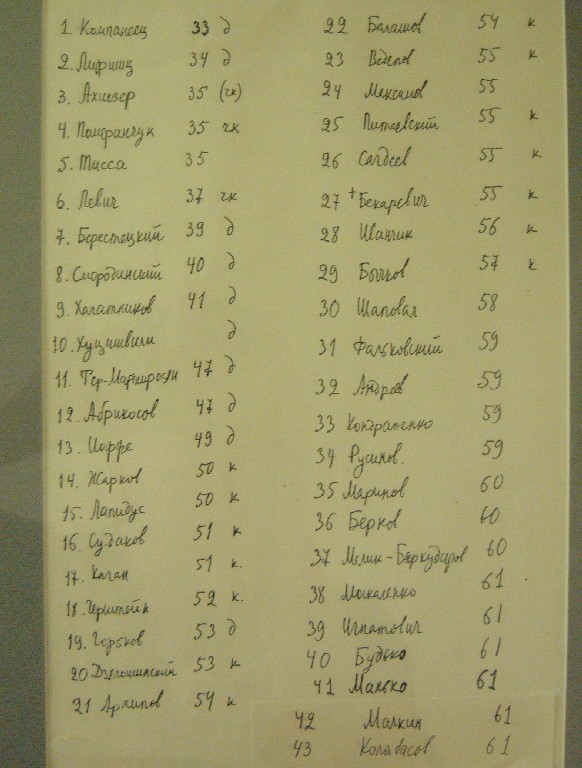 1. Компанеец 33 д
2. Лифшиц 34 д
3. Ахиезер 35 (чк)
4. Померанчук 35 чк
5. Тисса 35
6. Левич 37 чк
7. Берестецкий 39 д
8. Смородинский 40 д
9. Халатников 41 д
10. Хуцишвили д
11. Тер-Мартиросян 47 д
12. Абрикосов 47 д
13. Иоффе 49 д
14. Жарков 50 к
15. Лапидус 50 к
16. Судаков 51 к
17. Каган 51 к.
18. Герштейн 52 к.
19. Горьков 53 д
20 Дзялошинский 53 к
21 Архипов 54 к
22 Балашов 54 к
23 Веденов 55 к
24 Максимов 55
25 Питаевский 55 к
26 Сагдеев 55 к
27 + Бекаревич 55 к
28 Иванчик 56 к
29 Бычков 57 к
30 Шаповал 58
31 Фальковский 59
32 Андреев 59
33 Кондратенко 59
34 Русинов. 59
35 Маринов 60
36 Берков 60
37 Мелик-Бархударов 60
38 Москаленко 61
39 Игнатович 61
40 Будько 61
41 Манько 61
42 Малкин 61
43 Колыбасов 61